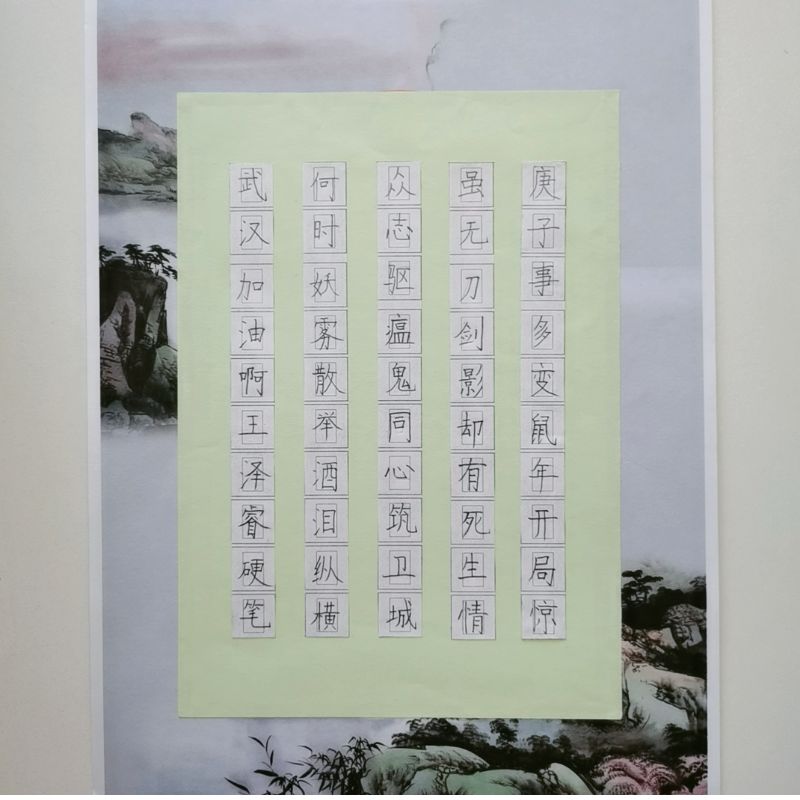 庚子事多变鼠年开局惊
虽无刀剑影却有死生情
众志驱瘟鬼同心筑卫城
何时妖雾散举酒泪纵横
武汉加油啊王泽睿硬笔